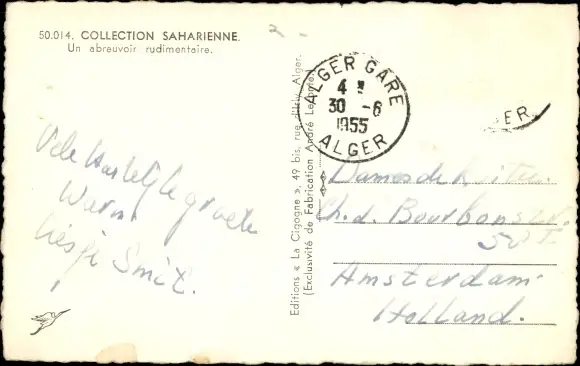 50.014. COLLECTION SAHARIENNE.
Un abreuvoir rudimentaire.
Vele hartelijke groeten
Warm
Liesje Smit.
Editions « La Cigogne », 49 bis, rue d'Isly, Alger.
(Exclusivité de Fabrication André Leconte)
ALGER GARE
4
30 -6
1955
ALGER
GER
Dames de
Ch. d. Bourbonstr.
50 I
Amsterdam
Holland.